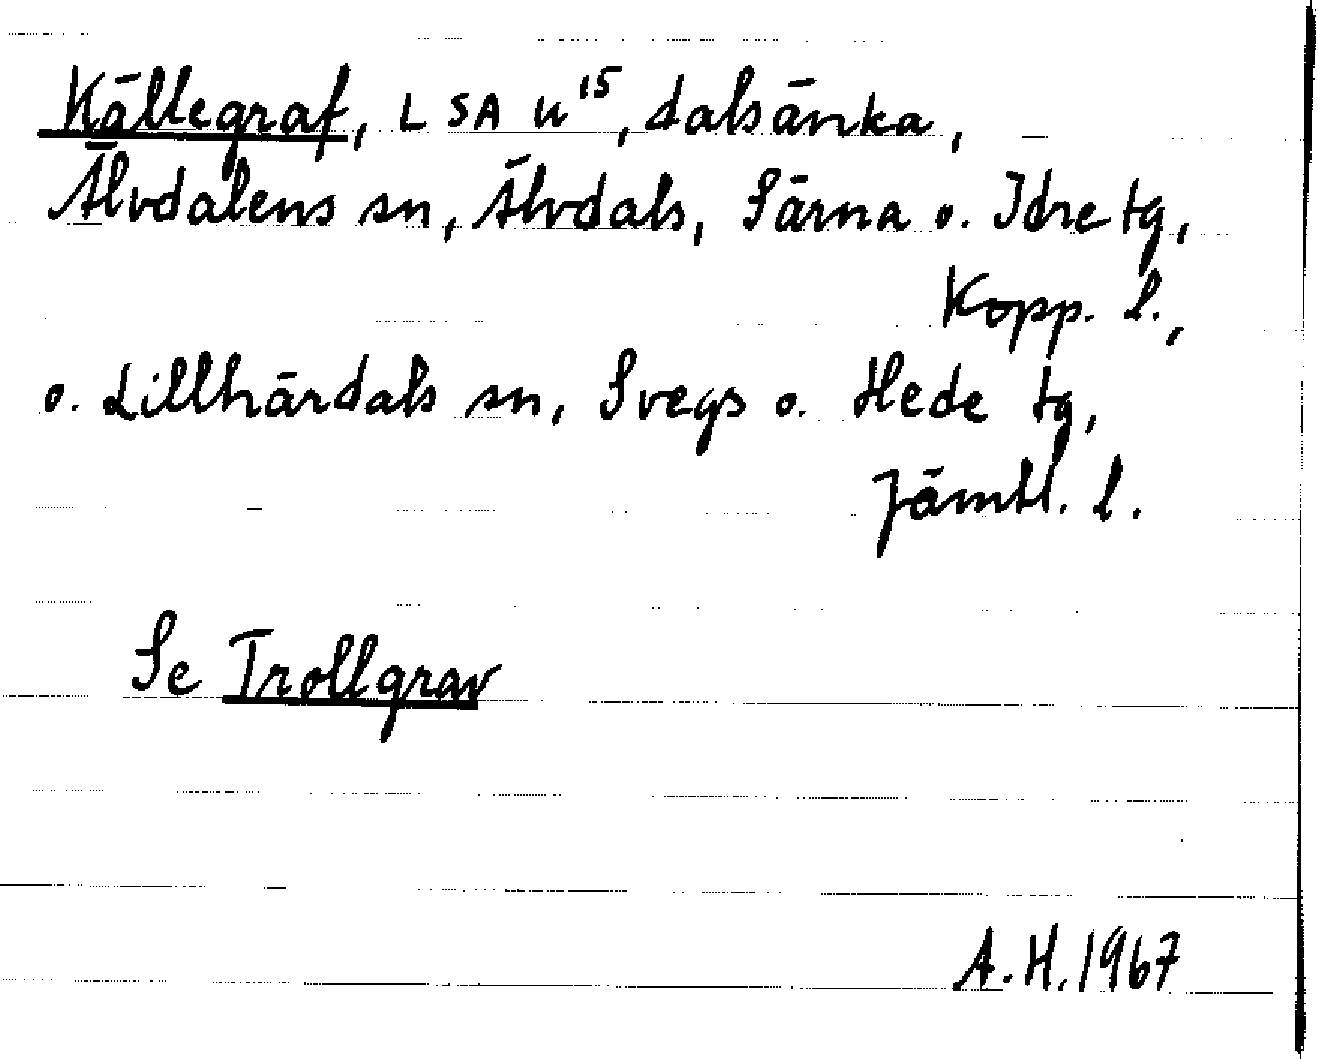 Källegraf, LSA U¹⁵, dalsänka,
Älvdalens sn, Älvdals, Särna o. Idre tg,
Kopp. l.,
o. Lillhärdals sn, Svegs o. Hede tg,
Jämtl. l.
Se Trollgrav
A.H. 1967